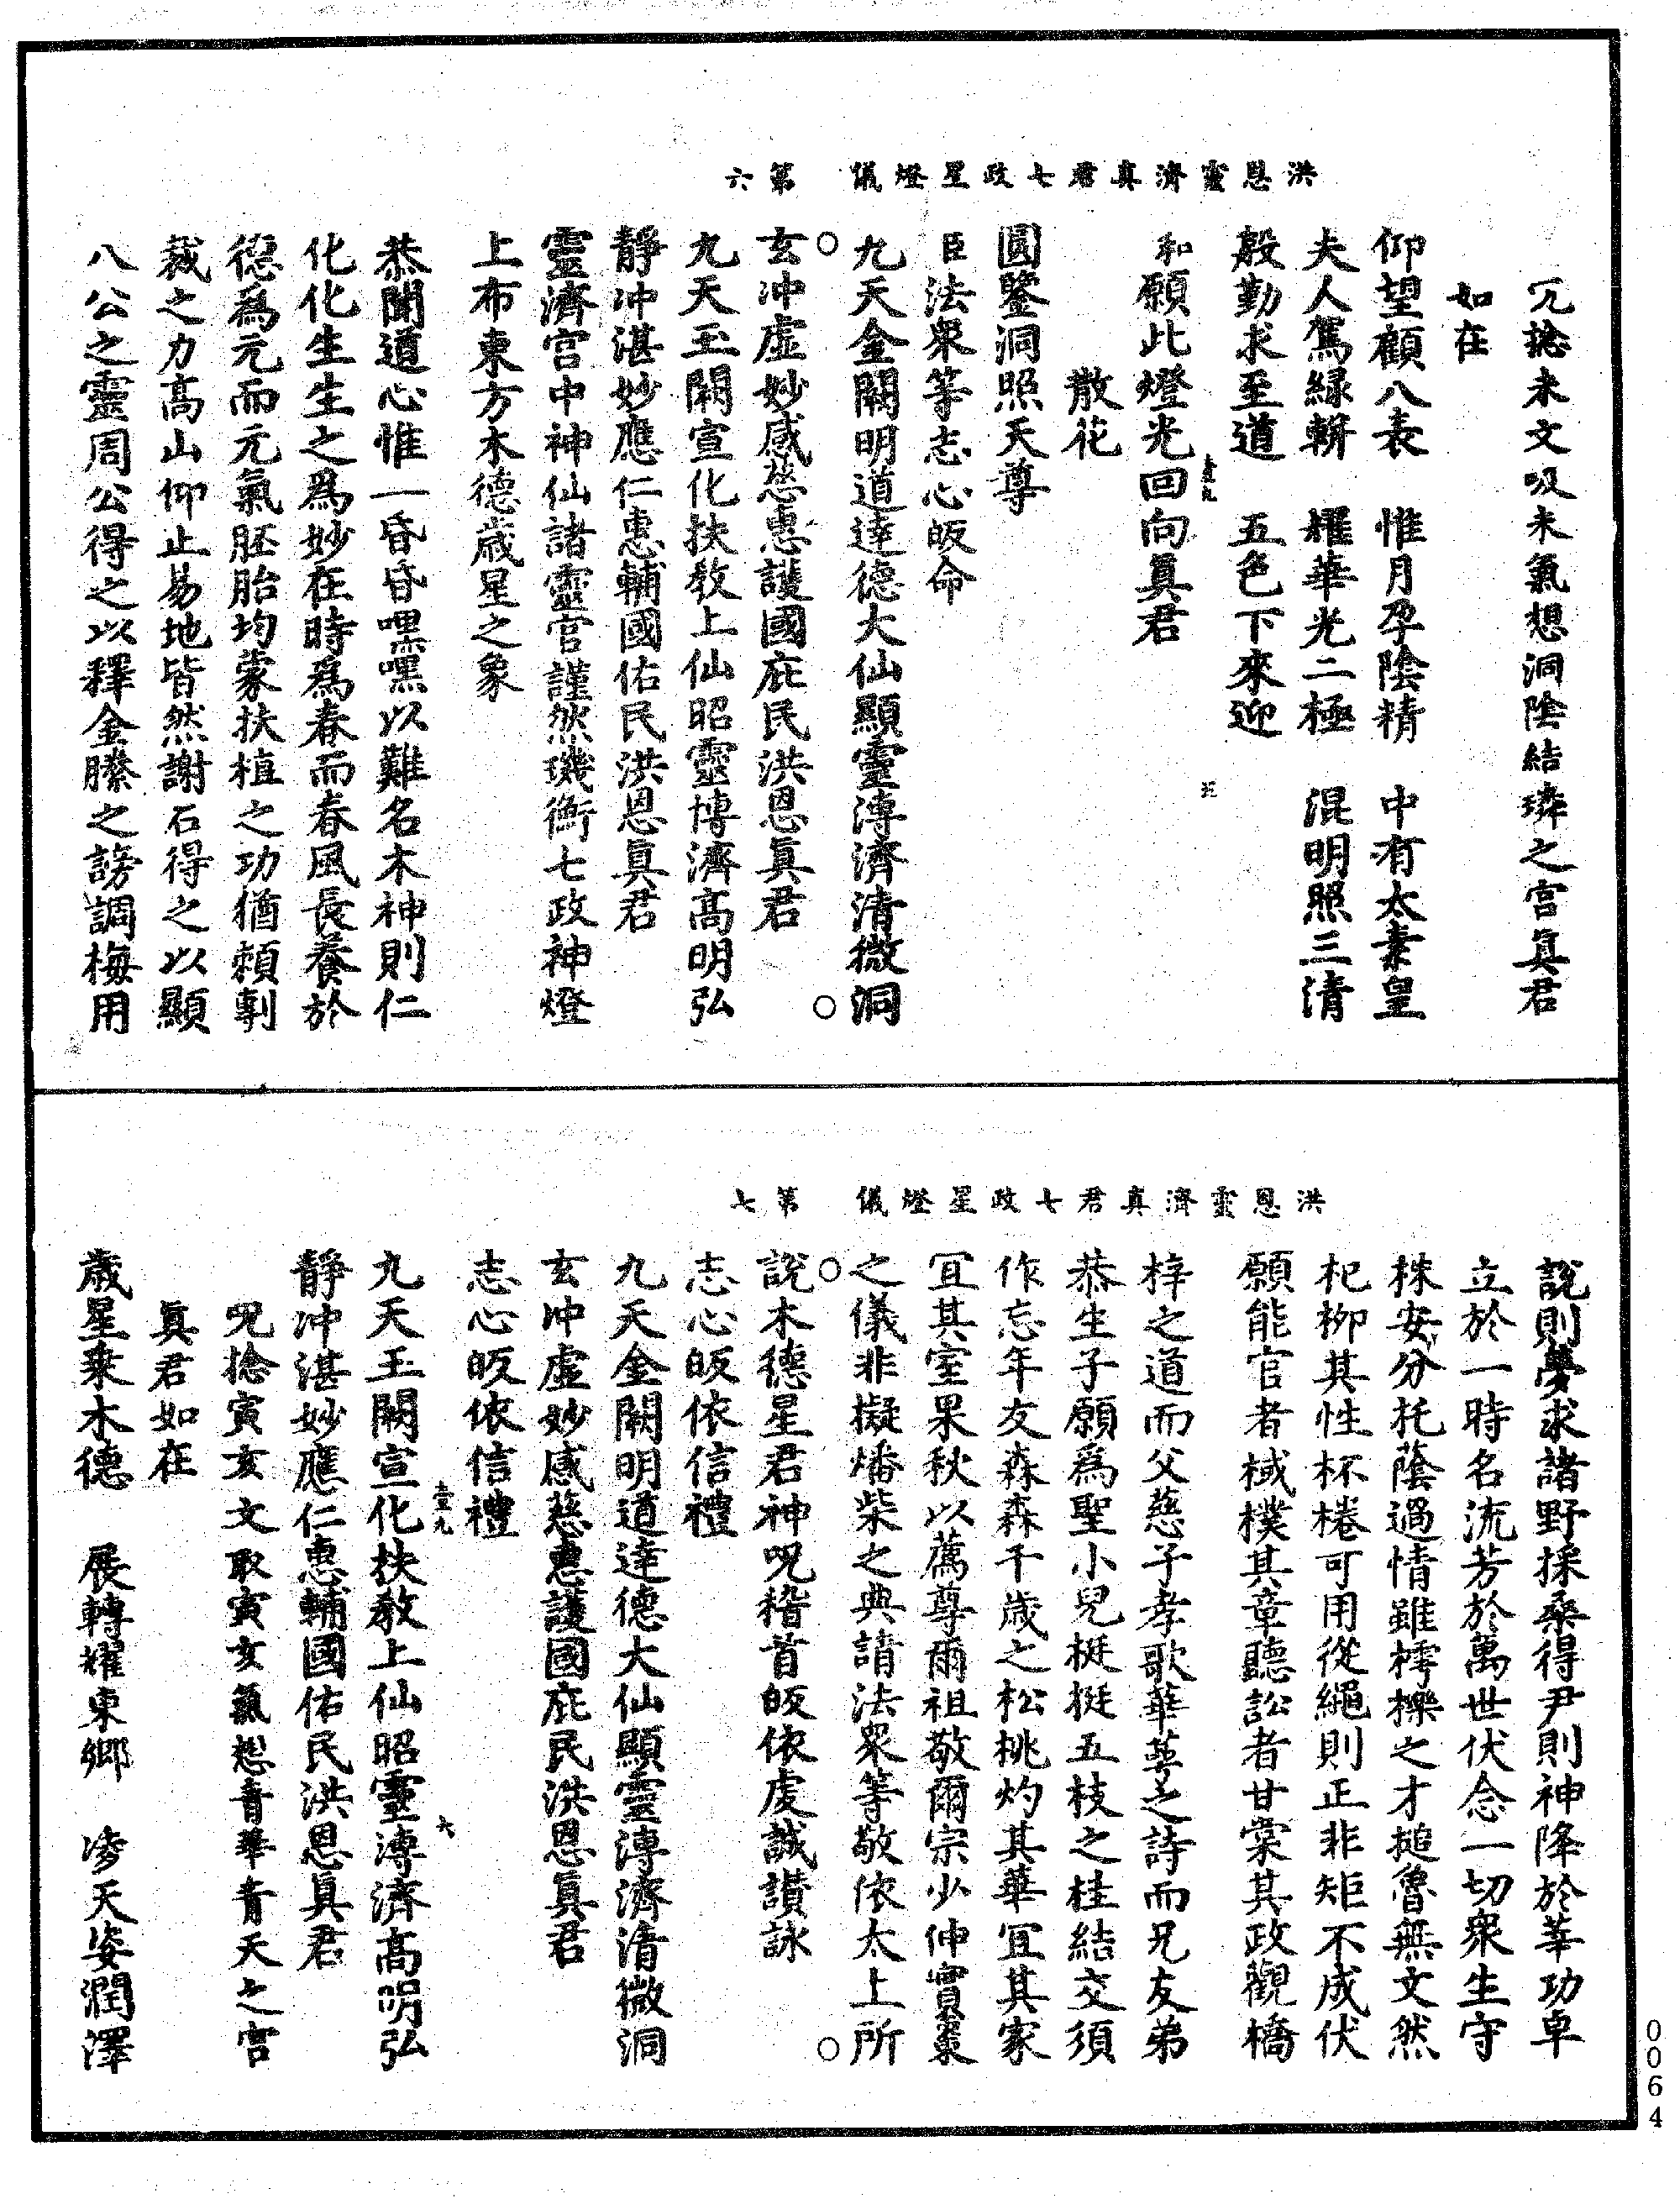 洪恩靈濟真君七政星燈儀　第六
咒捻未文吸未氣想洞陰結璘之宮真君
如在
仰望顧八表　惟月孕陰精　中有太素皇
夫人駕緑輧　耀華光二極　混明照三清
殷勤求至道　五色下來迎
和願此燈光回向真君
散花
圓鑒洞照天尊
臣法衆等志心皈命
九天金闕明道達德大仙顯靈溥濟清微洞
玄冲虛妙感慈惠護國庇民洪恩真君
九天玉闕宣化扶教上仙昭靈博濟高明弘
靜冲湛妙應仁惠輔國佑民洪恩真君
靈濟宮中神仙諸靈官謹然璣衡七政神燈
上布東方木德歲星之象
恭聞道心惟一昏昏嘿嘿以難名木神則仁
化化生生之爲妙在時爲春而春風長養於
德爲元而元氣胚胎均蒙扶植之功猶頼剸
裁之力高山仰止易地皆然謝石得之以顯
八公之靈周公得之以釋金縢之謗調梅用
壹九
六
洪恩靈濟真君七政星燈儀　第七
說則夢求諸野採桑得尹則神降於莘功卓
立於一時名流芳於萬世伏念一切衆生守
株安分托蔭過情雖樗櫟之才搥魯無文然
杞柳其性杯棬可用從繩則正非矩不成伏
願能官者棫樸其章聽訟者甘棠其政觀橋
梓之道而父慈子孝歌華萼之詩而兄友弟
恭生子願爲聖小兒挺挺五枝之桂結交須
作忘年友森森千歲之松桃灼其華宜其家
宜其室果秋以薦尊爾祖敬爾宗少伸實棗
之儀非擬燔柴之典請法衆等敬依太上所
說木德星君神咒稽首皈依虔誠讃詠
志心皈依信禮
九天金闕明道達德大仙顯靈溥濟清微洞
玄冲虛妙感慈惠護國庇民洪恩真君
志心皈依信禮
九天玉闕宣化扶教上仙昭靈溥濟高明弘
靜冲湛妙應仁惠輔國佑民洪恩真君
咒捻寅亥文取寅亥氣想青華青天之宮
真君如在
歲星乘木德　展轉耀東鄉　凌天姿潤澤
0064